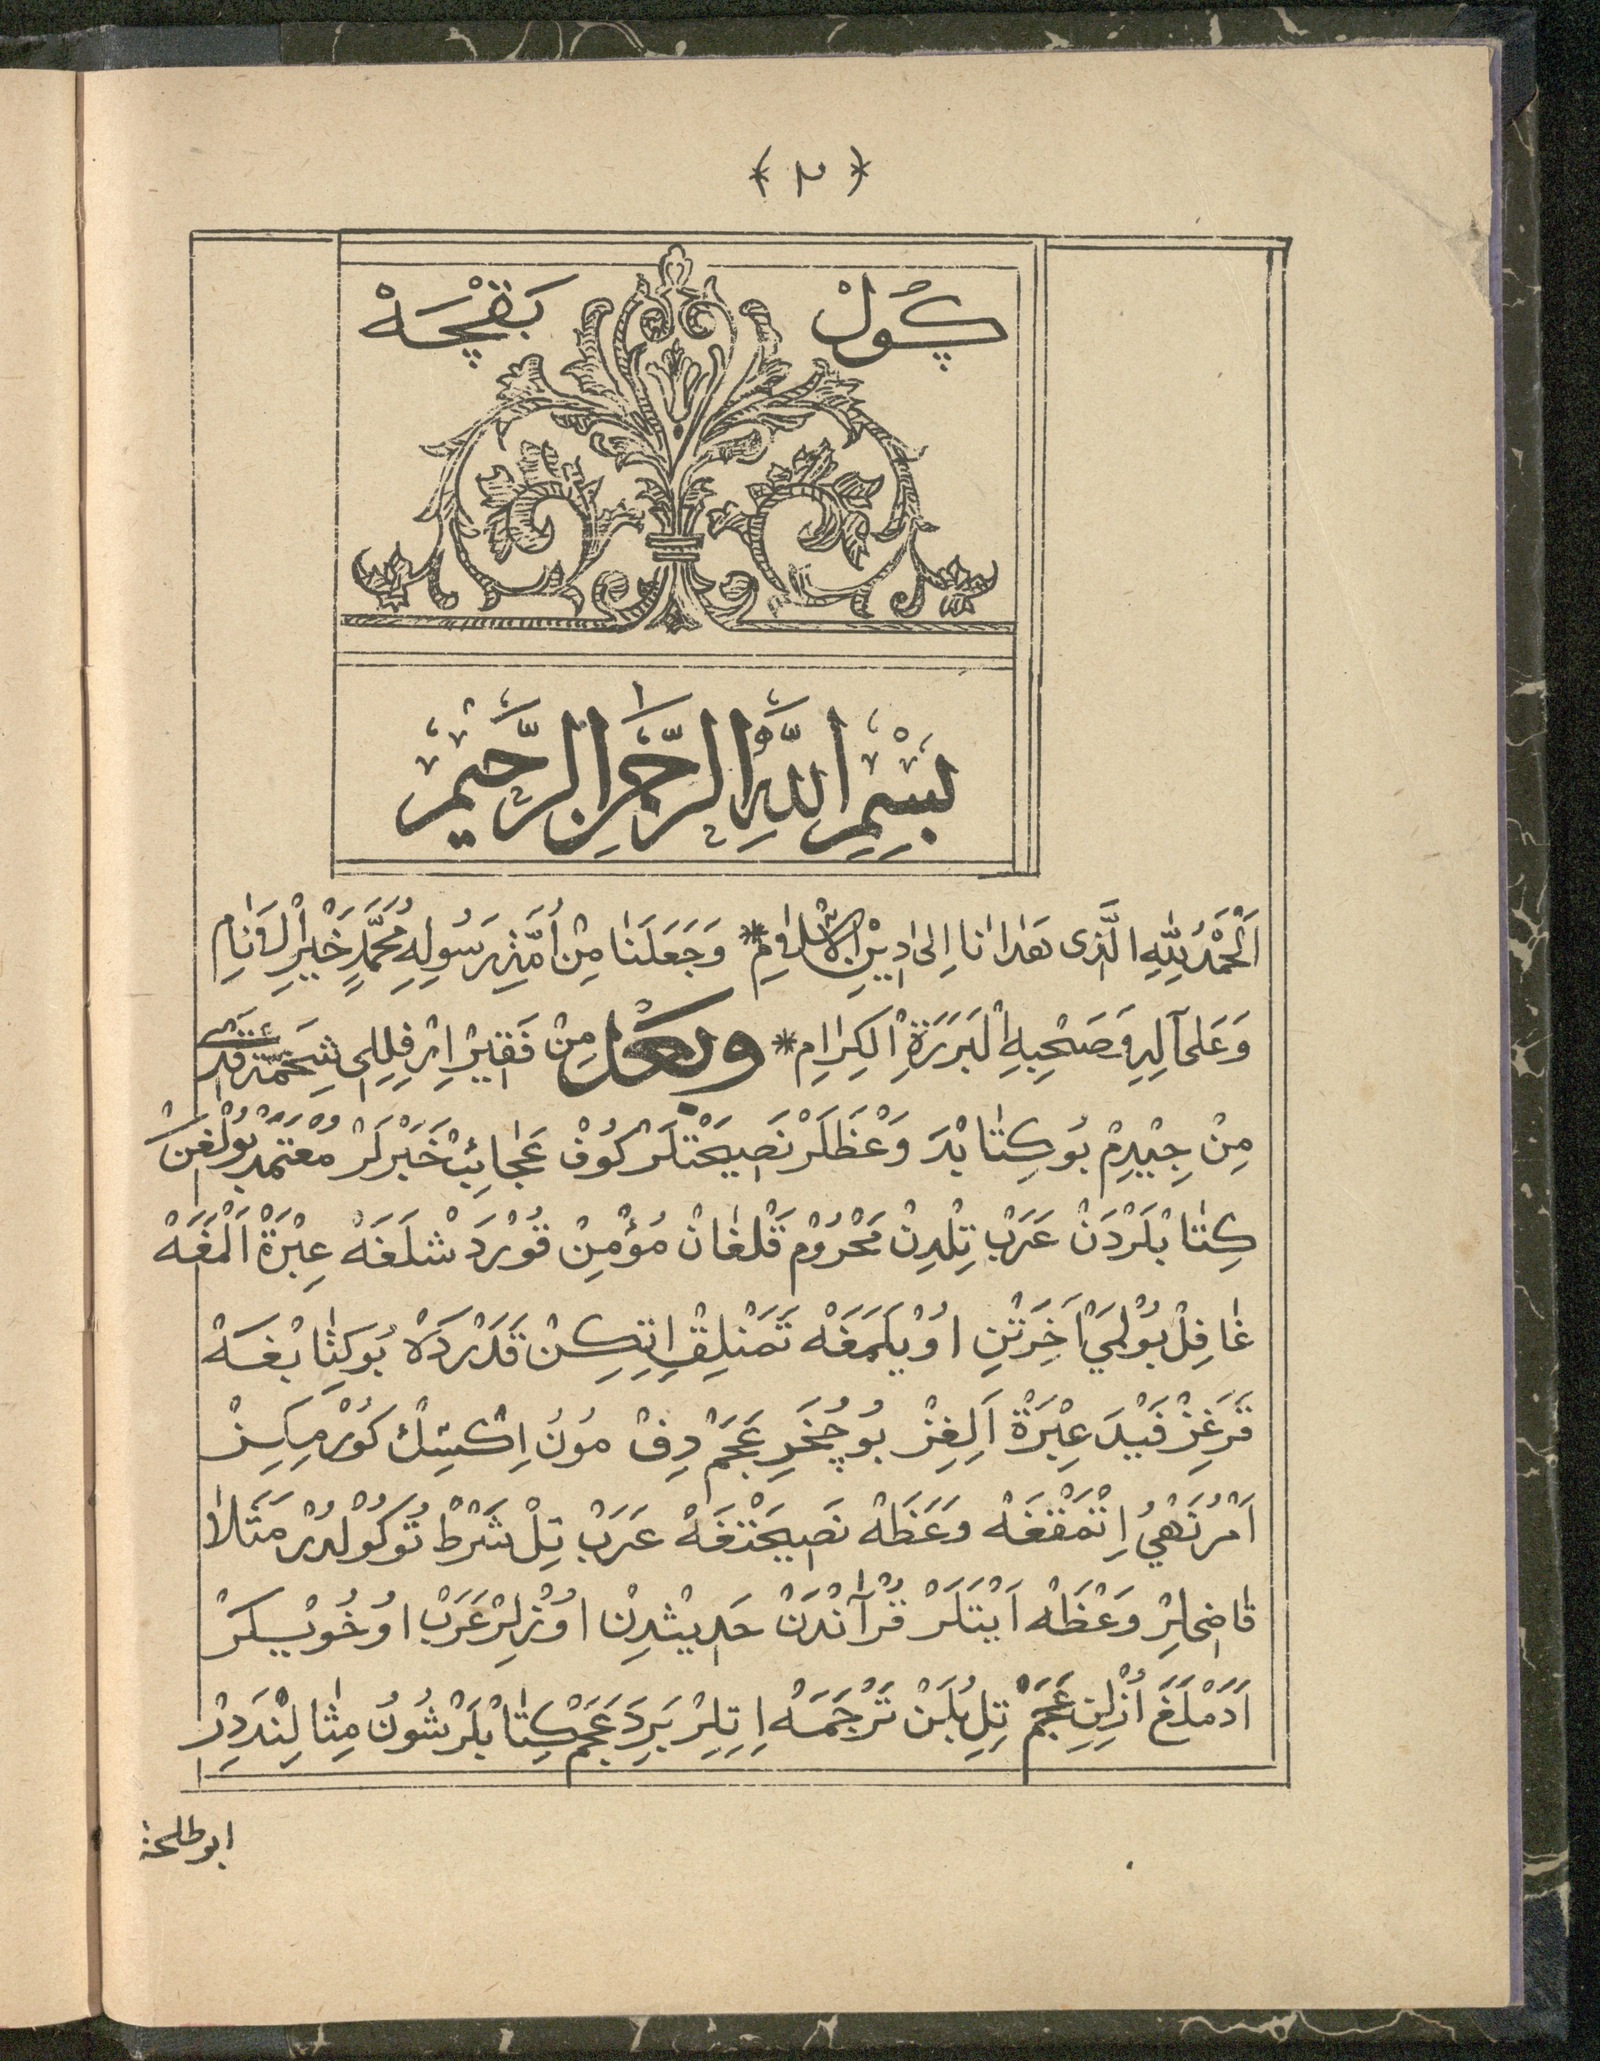 ﴿ ٢ ﴾
كُولْ بَقْچَهْ
بِسْمِ اللَّهِ الرَّحْمَنِ الرَّحِيمِ
اَلْحَمْدُ لِلّٰهِ الَّذِى هَدٰانَا اِلىٰ دِيْنِ الْاِسْلَامِ * وَجَعَلَنٰا مِنْ اُمَّةِ رَسُولِهِ مُحَمَّدٍ خَيْرِ الْاَنٰامِ
وَعَلىٰ آلِهِ وَصَحْبِهِ الْبَرَرَةِ الْكِرٰامِ * وبعد مِنْ فَقِيرْ
مِنْ جِيْدِمْ بُو كِتٰابْدَ وَعْظَلَرْ نَصِيحَتْلَرْ كُوفْ عَجٰائِبْ خَبَرْلَرْ مُعْتَمَدْ بُولْغَنْ
كِتٰابْلَرْدَنْ عَرَبْ تِلْدِنْ مَحْرُومْ قَلْغَانْ مُؤْمِنْ قُورْدَشْلَغَهْ عِبْرَةْ اَلْمَغَهْ
غٰافِلْ بُولْمَيْ اَخِرَتْنِ اُوْيْلَمَغَهْ تَمَنْلِقْ اِتِكِنْ قَدَرْدَهْ بُو كِتٰابْغَهْ
قَرَغِزْ عِبْرَةْ اَلِغِزْ بُو عَجَمْ دِفْ مُونُ اِكْسِكْ كُورْمِكِزْ
اَمْرُ نَهْيُ اِتْمَقْغَهْ وَعَظَهْ نَصِيحَتْغَهْ عَرَبْ تِلْ شَرْطْ تُوكُولْدُرْ مَثَلًا
قٰاضِىلَرْ وَعْظَهْ اَيْتَلَرْ قُرْآنْدَنْ حَدِيثْدِنْ اُوزْلَرِ عَرَبْ اُوخُويْلَرْ
اَدَمْلَغَ اُزْلِنِ عَجَمْ تِلِ بُلَنْ تَرْجَمَهْ اِتِلِرْ بَرِدَ عَجَمْ كِتٰابْلَرْ شُونُ مِثٰالِنْدَدِرْ
ابو طلحة